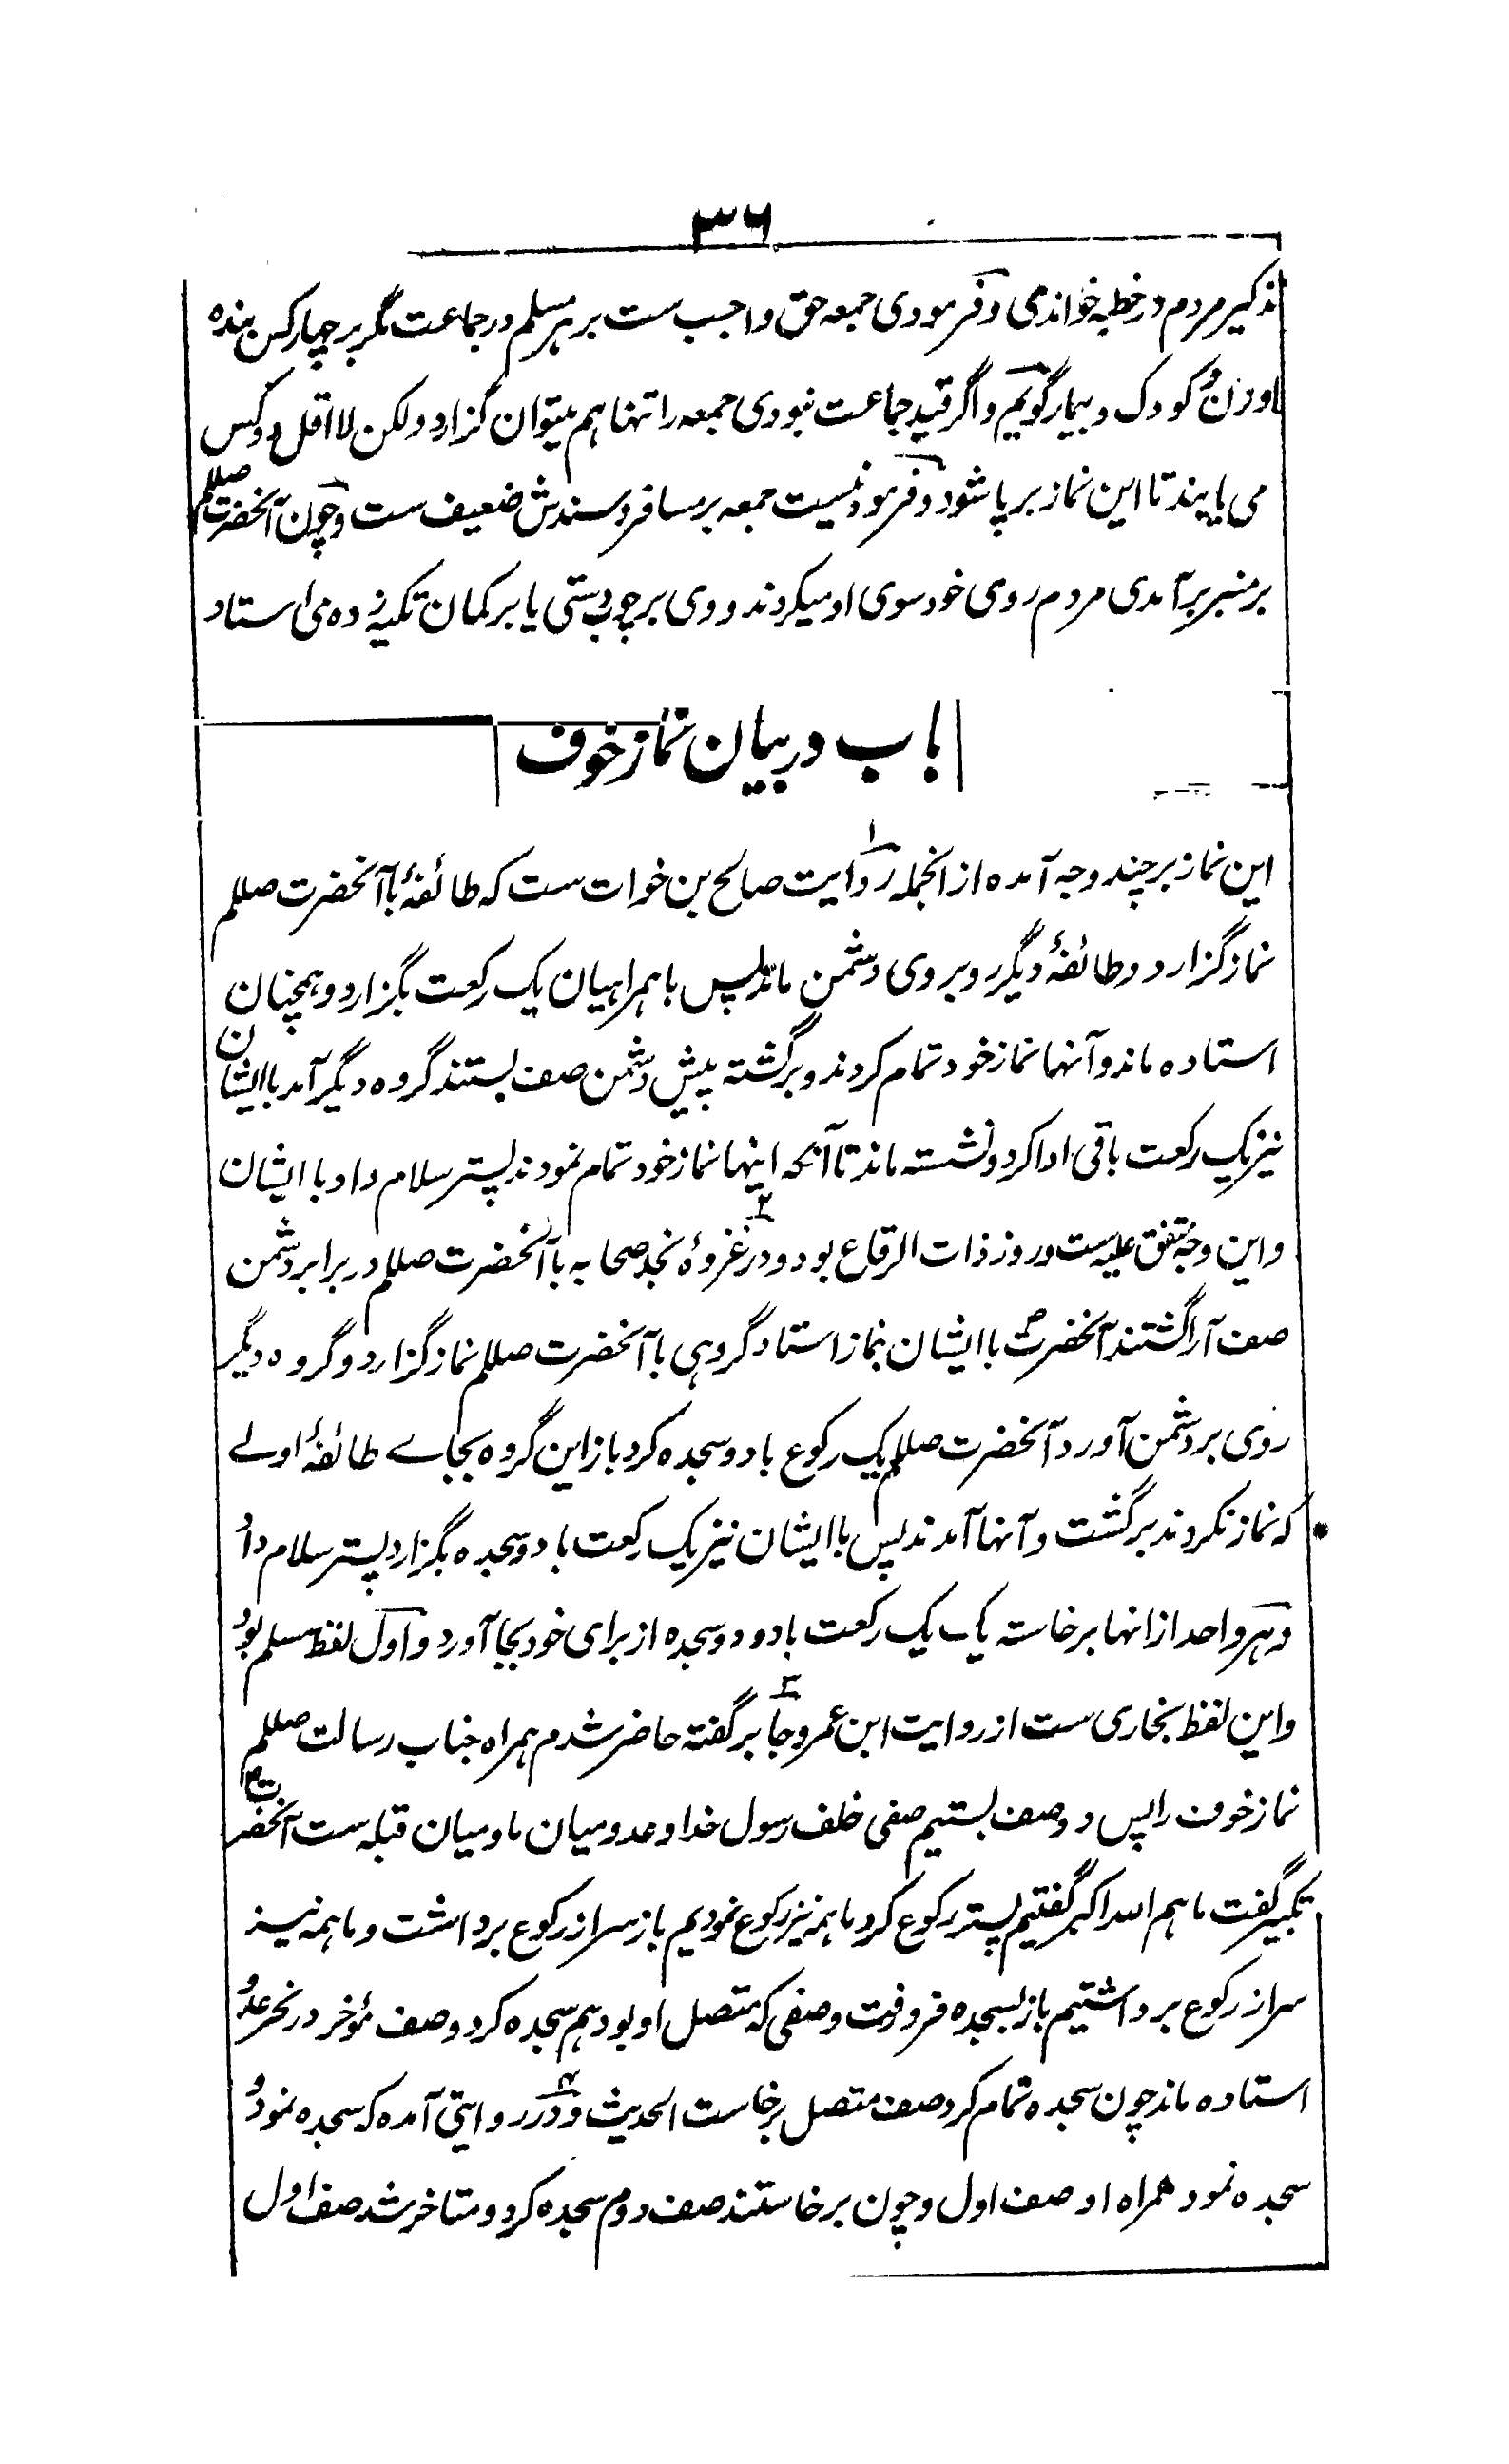 ۳۶
تذکیر مردم در خطبه خواندی و فرمودی جمعه حق واجب ست بر هر مسلم در جماعت مگر بر چهار کس بنده
و زن و کودک و بیمار گویم و اگر قید جماعت نبودی جمعه را تنها هم میتوان گزارد ولکن لا اقل دو کس
می بایند تا این نماز بر پا شود و فرمود نیست جمعه بر مسافر و سندش ضعیف ست و چون آنحضرت صللم
بر منبر برآمدی مردم روی خود سوی او میکردند و وی بر چوب دستی یا بر کمان تکیه زده می استاد
باب در بیان نماز خوف
این نماز بر چند وجه آمده از انجمله ۱ روایت صالح بن خوات ست که طائفۀ با آنحضرت صللم
نماز گزارد و طائفۀ دیگر روبروی دشمن ماند پس با همراهیان یک رکعت بگزارد و همچنان
استاده ماند و آنها نماز خود تمام کردند و برگشته پیش دشمن صف بستند گروه دیگر آمد با ایشان
نیز یک رکعت باقی ادا کرد و نشسته ماند تا آنکه اینها نماز خود تمام نمودند پستر سلام داد با ایشان
و این وجه متفق علیه ست و روز ذات الرقاع بود ۲ و در غزوۀ نجد صحابه با آنحضرت صللم در برابر دشمن
صف آرا گشتند آنحضرت ؐ با ایشان بنماز استاد گروهی با آنحضرت صللم نماز گزارد و گروه دیگر
روی بر دشمن آورد آنحضرت صللم یک رکوع با دو سجده کرد باز این گروه بجاے طائفۀ اولے
که نماز نکردند برگشت و آنها آمدند پس با ایشان نیز یک رکعت با دو سجده بگزارد پستر سلام داد
و هر واحد از انها برخاسته یک یک رکعت با دو دو سجده از برای خود بجا آورد و اول لفظ مسلم بود
و این لفظ بخاری ست از روایت ابن عمر ۳ و جابر گفته حاضر شدم همراه جناب رسالت صللم
نماز خوف را پس دو صف بستیم صفی خلف رسول خدا و عدو میان ما و میان قبله ست آنحضرت
تکبیر گفت ما هم الله اکبر گفتیم پستر رکوع کرد ما همه نیز رکوع نمودیم باز سر از رکوع برداشت و ما همه نیز
سر از رکوع برداشتیم باز بسجده فرو رفت و صفی که متصل او بود هم سجده کرد و صف مؤخر در نحر عدو
استاده ماند چون سجده تمام کرد صف متصل برخاست الحدیث ۴ و در روایتی آمده که سجده نمود و
سجده نمود همراه او صف اول و چون برخاستند صف دوم سجده کرد و متاخر شد صف اول